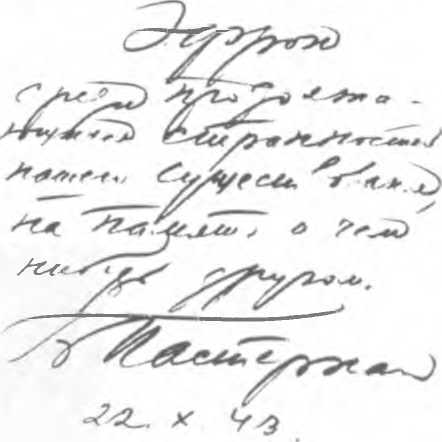 Эфрон
среди продолжа-
ющихся странностей
нашего существования,
на память о чем
нибудь другом.
Б Пастернак
22. X. 43.